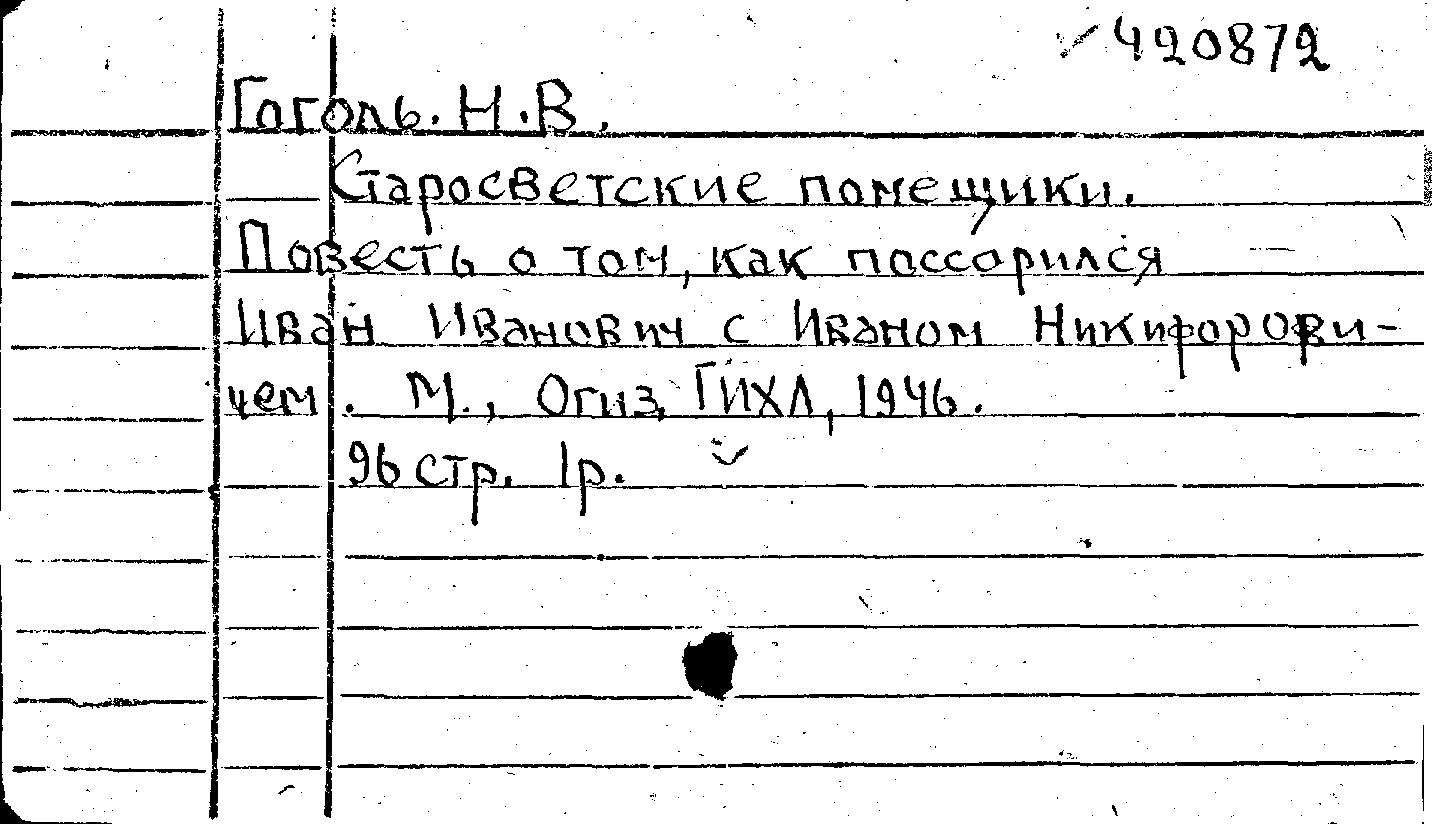 420872
Гоголь. Н.В.
Старосветские помещики.
Повесть о том, как поссорился
Иван Иванович с Иваном Никифорови-
чем. М., Огиз, ГИХЛ, 1946.
96 стр. 1р.